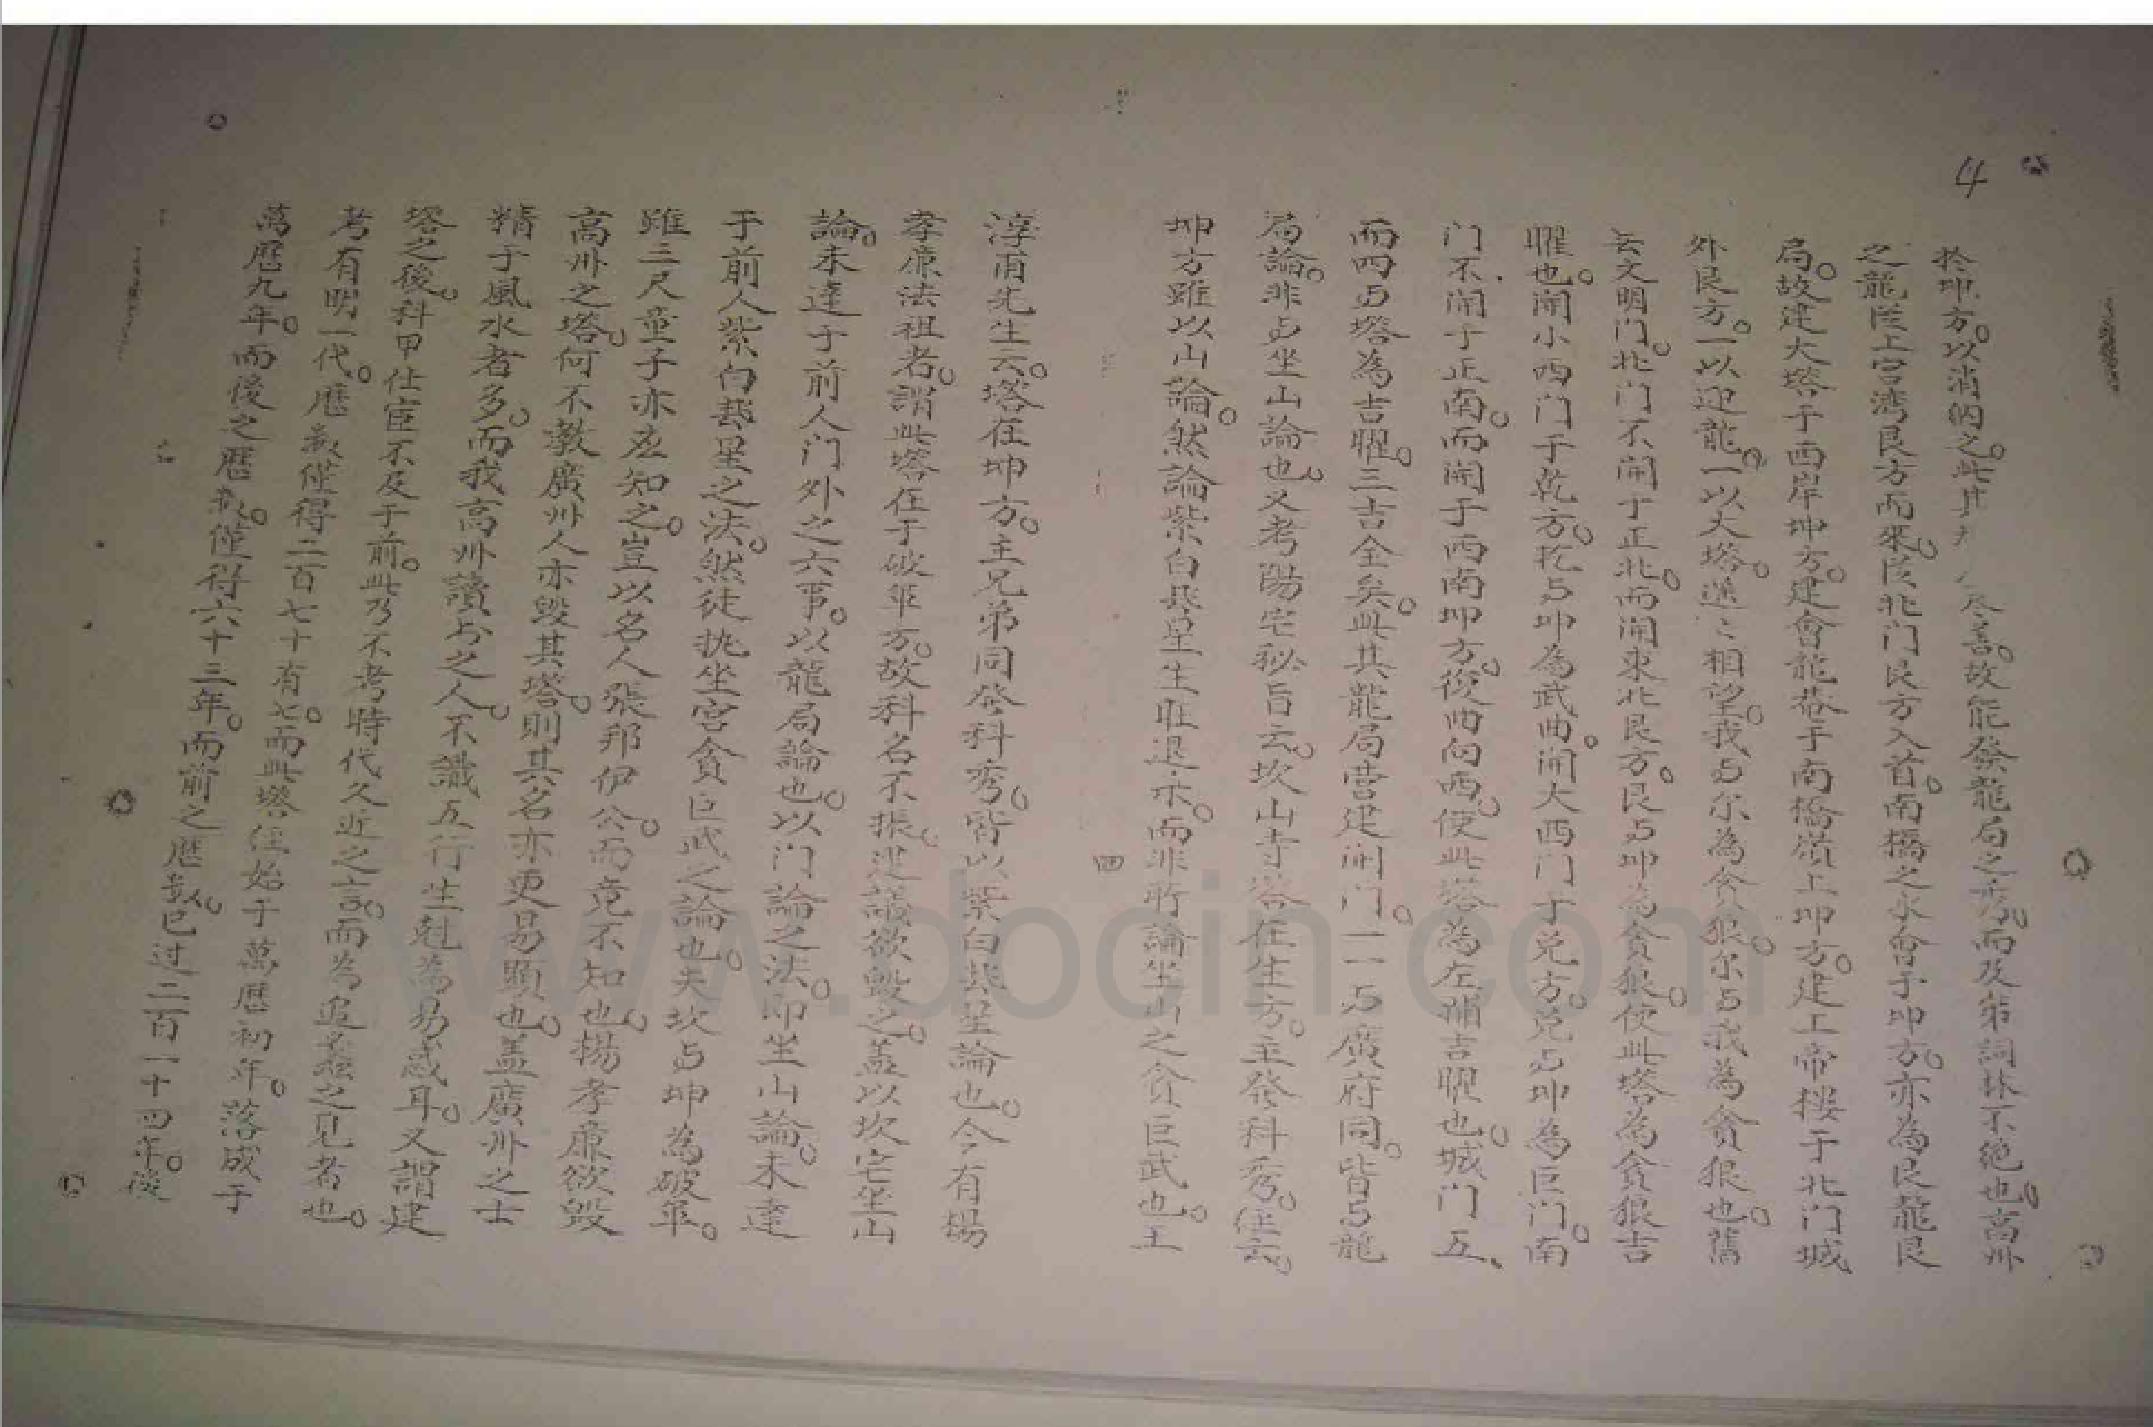 4
於坤方。以消納之。此其 尽善。故能發龍局之秀。而及第詞林不絕也。高州
之龍從上宫湾艮方而來。從北门艮方入首。南橋之水會于坤方。亦為艮龍艮
局。故建大塔于西岸坤方。建會龍菴于南橋嶺上坤方。建上帝楼于北门城
外艮方。一以迎龍。一以大塔遥々相望。我与尔為貪狼。尔与我為貪狼也。舊
云文明门。北门不開于正北。而開東北艮方。艮与坤為貪狼。使此塔為貪狼吉
曜也。開小西门于乾方。乾与坤為武曲。開大西门于兌方。兌与坤為巨门。南
门不開于正南。而開于西南坤方。後西向西。使此塔為左輔吉曜也。城门五、
而四与塔為吉曜。三吉全矣。此其龍局营建開门。一一与廣府同。皆与龍
局論。非与坐山論也。又考陽宅秘旨云。坎山寺塔在生方。主發科秀。註云。
坤方雖以山論。然論紫白其星生旺退 。而非所論坐山之貪巨武也。王
四
淳甫先生云。塔在坤方。主兄弟同登科秀。皆以紫白其星論也。今有楊
孝廉法祖者。謂此塔在于破军方。故科名不振。建議欲毀之。盖以坎宅坐山
論。未達于前人门外之六事。以龍局論也。以门論之法。即坐山論。未達
于前人紫白其星之法。然徒执坐宫貪巨武之論也。夫坎与坤為破军。
雖三尺童子亦应知之。豈以名人張邦伊公。而竟不知也。楊孝廉欲毀
高州之塔。何不教廣州人亦毀其塔。則其名亦更易顕也。盖廣州之士
精于風水者多。而我高州讀书之人。不識五行生尅。為易惑耳。又謂建
塔之後。科甲仕宦不及于前。此乃不考時代久近之言。而為追 之見者也。
考有明一代。歷数僅得二百七十有七。而此塔经始于萬歷初年。落成于
萬歷九年。而後之歷数。僅得六十三年。而前之歷数。已过二百一十四年。從
www.docin.com